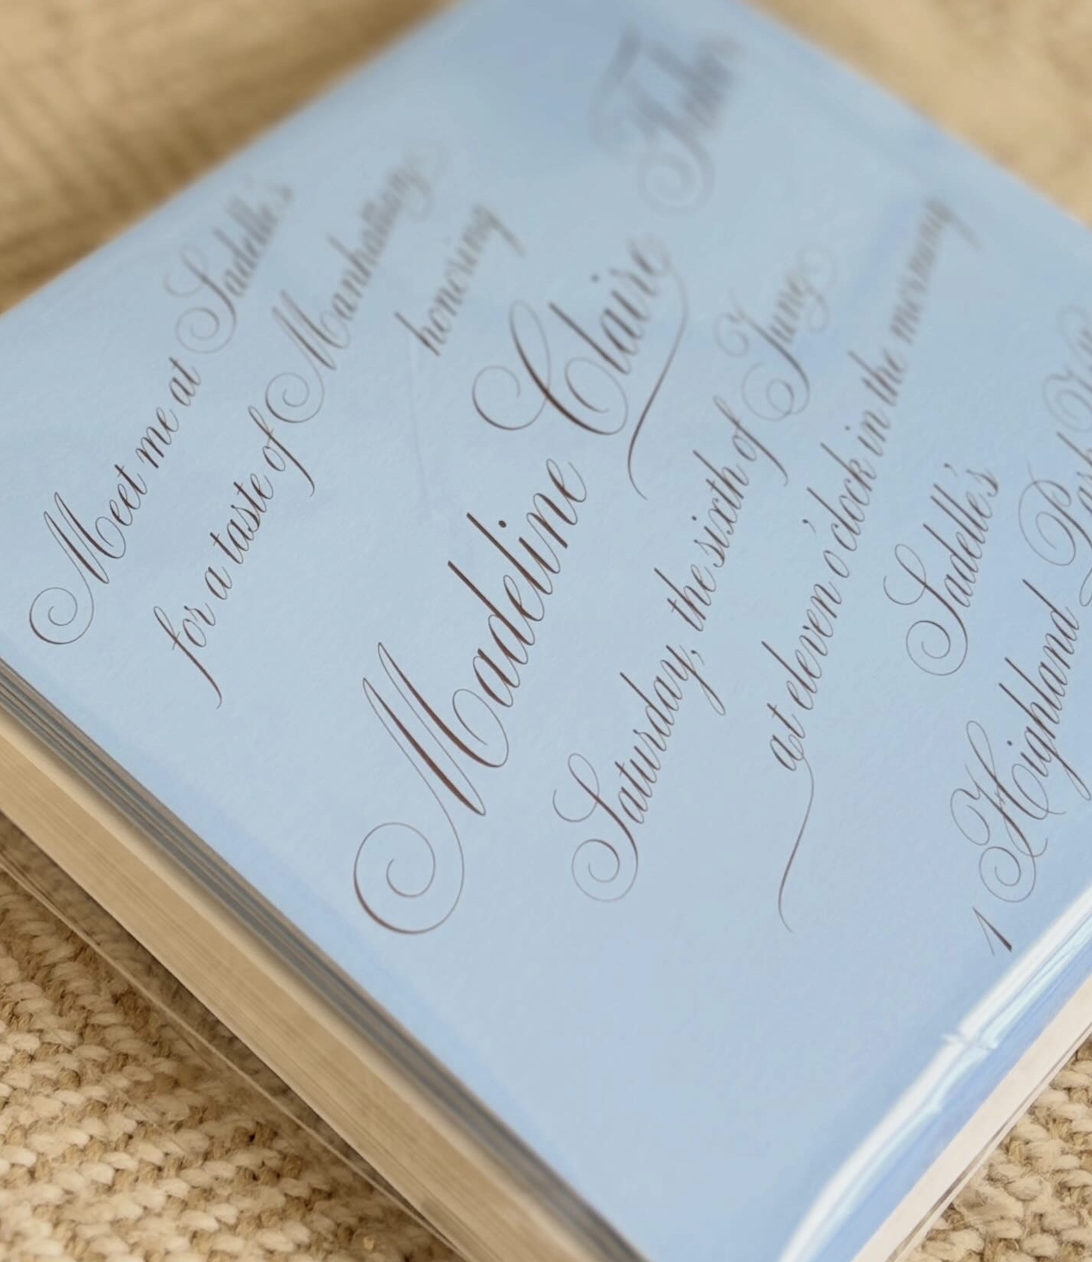 Meet me at Sadelle's
for a taste of Manhattan
honoring
Madeline Claire
Saturday, the sixth of June
at eleven o'clock in the morning
Sadelle's
1 Highland Park